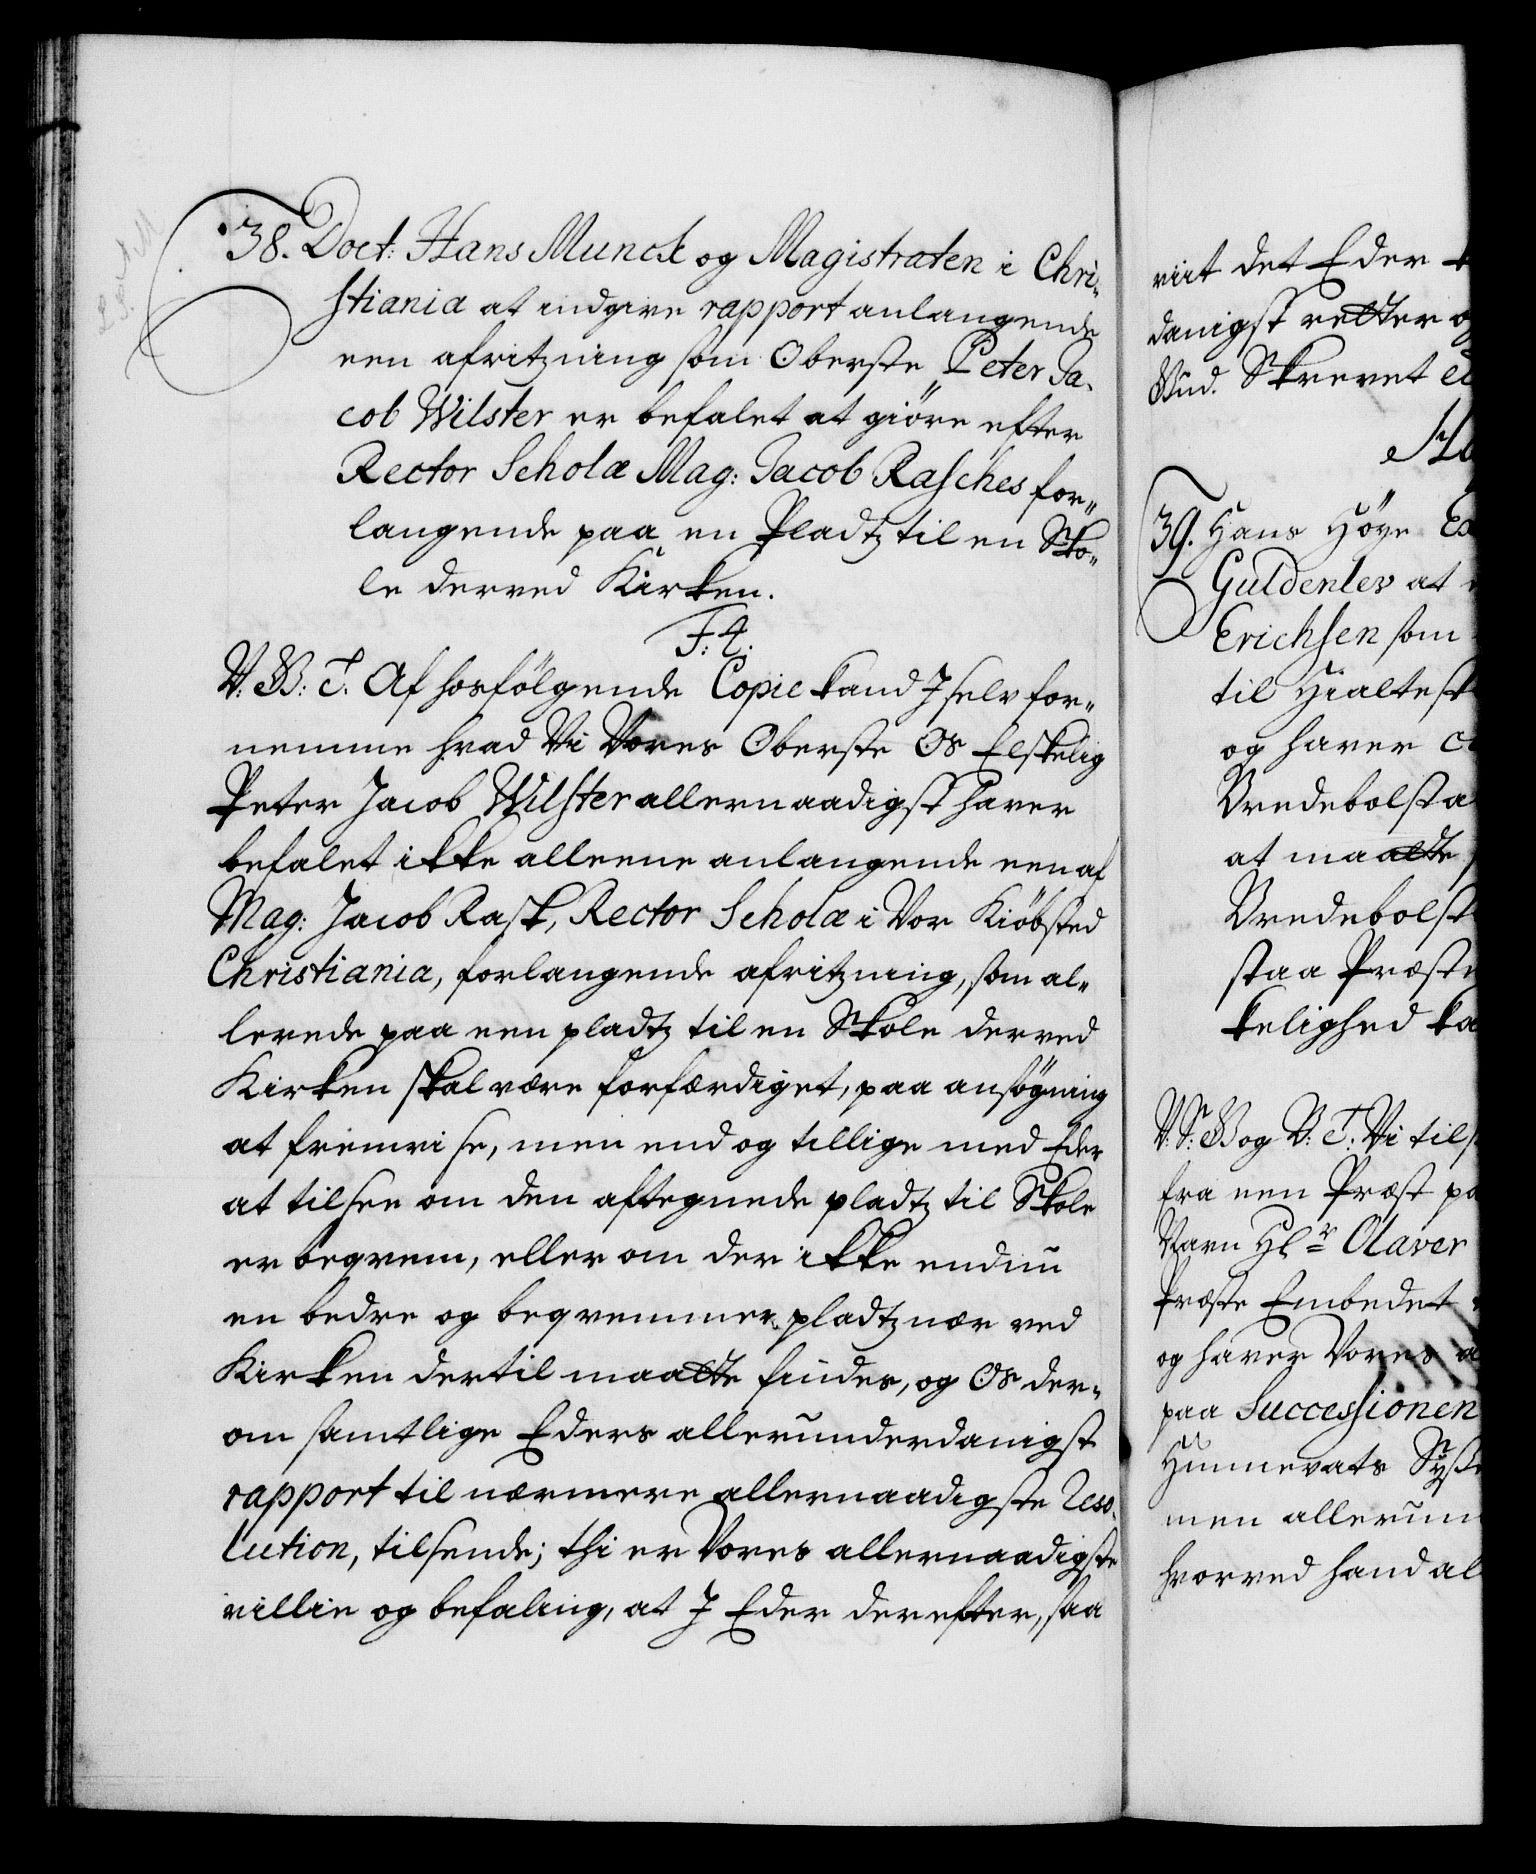 38. Doct: Hans Munck og Magistraten i Chri-
stiania at indgive rapport anlangende
een afritzning som Oberste Peter Ja-
cob Wilster er befalet at giöre efter
Rector Scholæ Mag: Jacob Rasches for-
langende paa en Pladtz til en Sko-
le derved Kirken.
F: 4.
V: G: T. Af hosfölgende Copie kand J selv for-
nemme hvad Vi Vores Oberste Os Elskelig
Peter Jacob Wilster allernaadigst haver
befalet ikke alleene anlangende een af
Mag: Jacob Rask, Rector Scholæ i Vor Kiöbsted
Christiania, forlangende afritzning, som al-
lerede paa een pladtz til en Skole derved
Kirken skal være forfærdiget, paa ansögning
at fremvise, men end og tillige med Eder
at tilsee om den aftegnede pladtz til Skole
er beqvem, eller om der ikke endnu
en bedre og beqvemmer pladtz nær ved
Kirken dertil maatte findes, og Os der-
om samtlige Eders allerunderdanigst
rapport til nærmere allernaadigste Reso-
lution, tilsende; thi er Vores allernaadigste
villie og befaling, at J Eder derefter, saa
viit det Eder
danigst retter
Gud. Skrevet
39. Hans Höye
Guldenlev at
Erichsen som
til Hialtesk
og haver
Bredebolsta
at maatte
Bredebolst
staa Præste
kelighed ka
V: S: G og V: T: Vi tils
fra een Præst pa
Navn Hr Olaver
Præste Embedet
og haver Vores a
paa Successionen
Hunnevats Sysse
men allerun
hvorved hand al